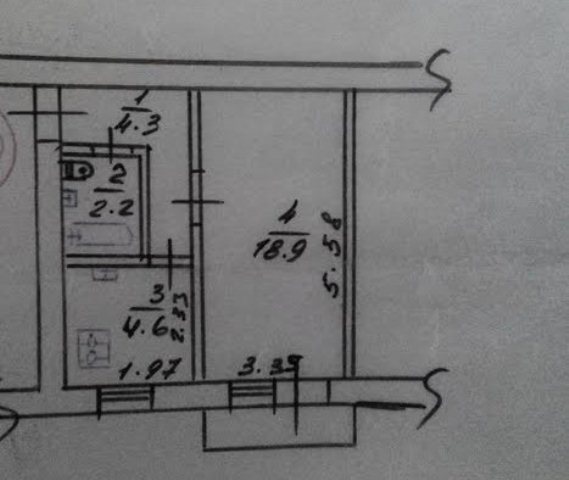 1
4.3
2
2.2
4
18.9
5.58
3
4.6
2.33
1.97
3.39